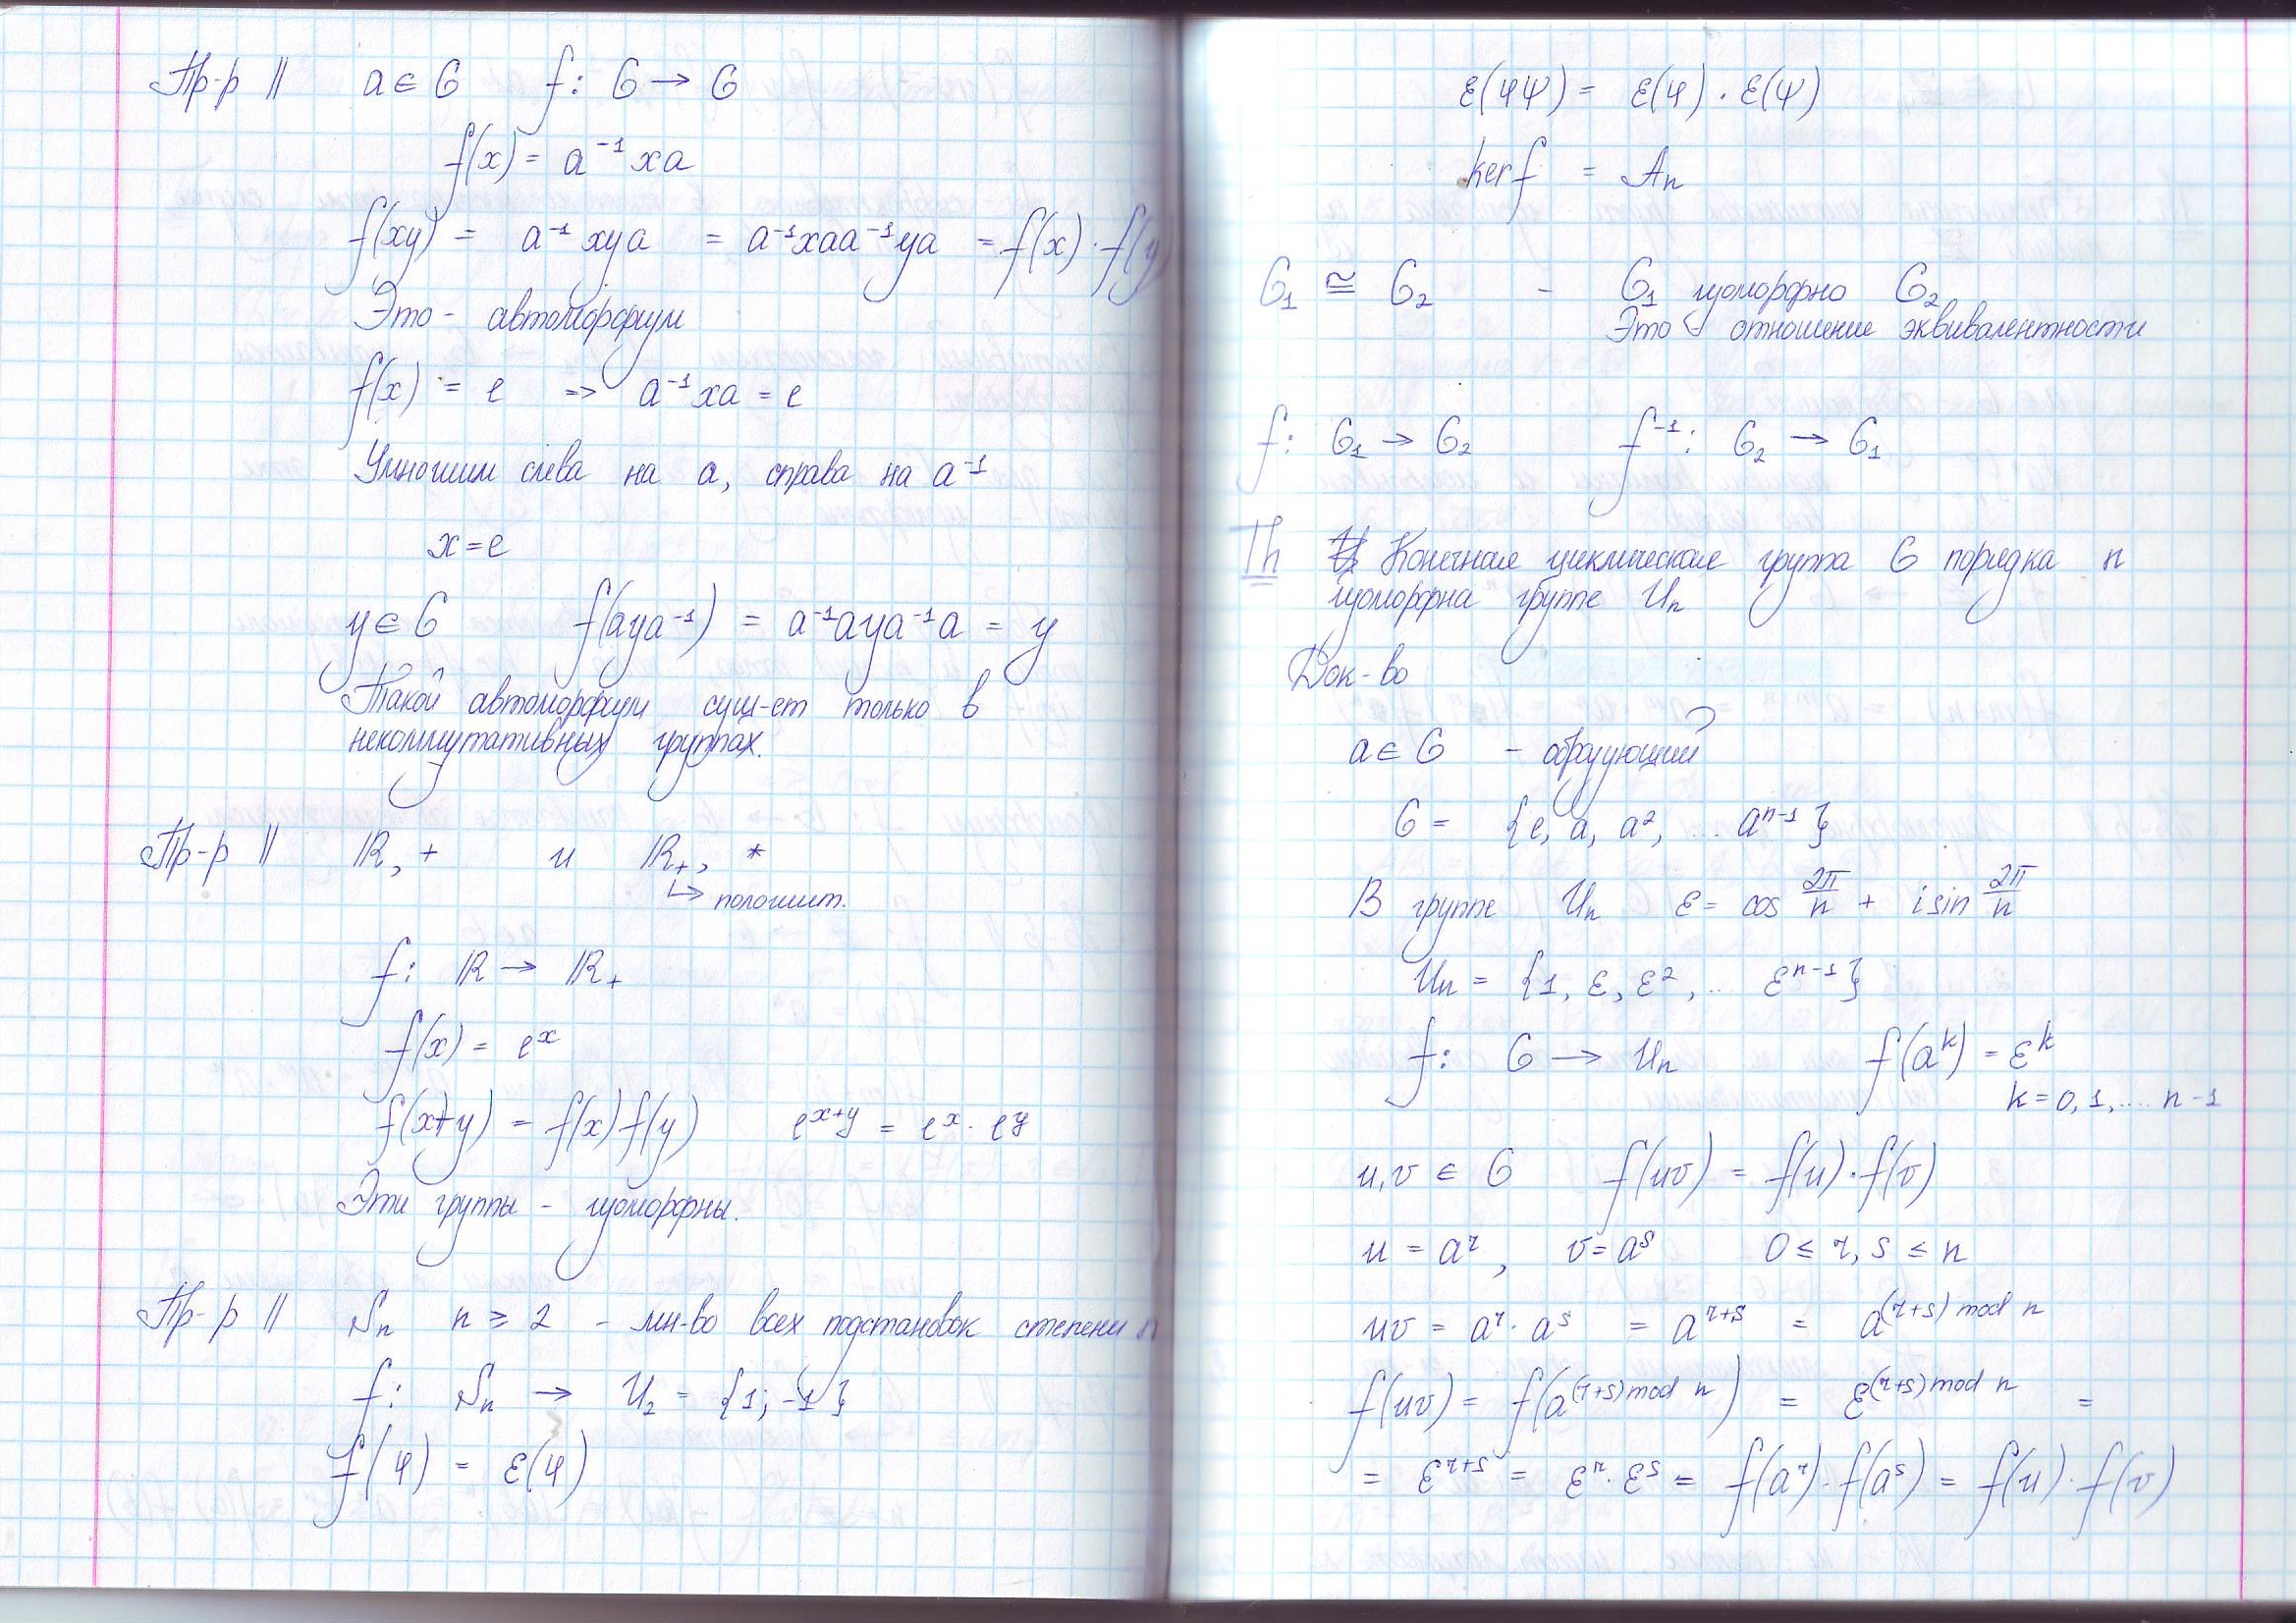 Пр-р || a ∈ G f: G → G
f(x) = a⁻¹xa
f(xy) = a⁻¹xya = a⁻¹xaa⁻¹ya = f(x)·f(y)
Это - автоморфизм
f(x) = e => a⁻¹xa = e
Умножим слева на a, справа на a⁻¹
x = e
y ∈ G f(aya⁻¹) = a⁻¹aya⁻¹a = y
Такой автоморфизм сущ-ет только в
некоммутативных группах.
Пр-р || ℝ, + и ℝ₊, *
↳ положит.
f: ℝ → ℝ₊
f(x) = eˣ
f(x+y) = f(x)f(y) eˣ⁺ʸ = eˣ · eʸ
Эти группы - изоморфны.
Пр-р || Sₙ n ≥ 2 - мн-во всех подстановок степени n
f: Sₙ → U₂ = {1; -1}
f(φ) = ε(φ)
ε(φψ) = ε(φ) · ε(ψ)
ker f = Aₙ
G₁ ≅ G₂ - G₁ изоморфно G₂
Это - отношение эквивалентности
f: G₁ → G₂ f⁻¹: G₂ → G₁
Th Конечная циклическая группа G порядка n
изоморфна группе Uₙ
Док-во
a ∈ G - образующий
G = {e, a, a², ... aⁿ⁻¹}
В группе Uₙ ε = cos 2π/n + i sin 2π/n
Uₙ = {1, ε, ε², ... εⁿ⁻¹}
f: G → Uₙ f(aᵏ) = εᵏ
k = 0, 1, .... n-1
u, v ∈ G f(uv) = f(u)·f(v)
u = aʳ, v = aˢ 0 ≤ r, s ≤ n
uv = aʳ · aˢ = aʳ⁺ˢ = a^(r+s) mod n
f(uv) = f(a^(r+s) mod n) = ε^(r+s) mod n =
= εʳ⁺ˢ = εʳ · εˢ = f(aʳ)·f(aˢ) = f(u)·f(v)